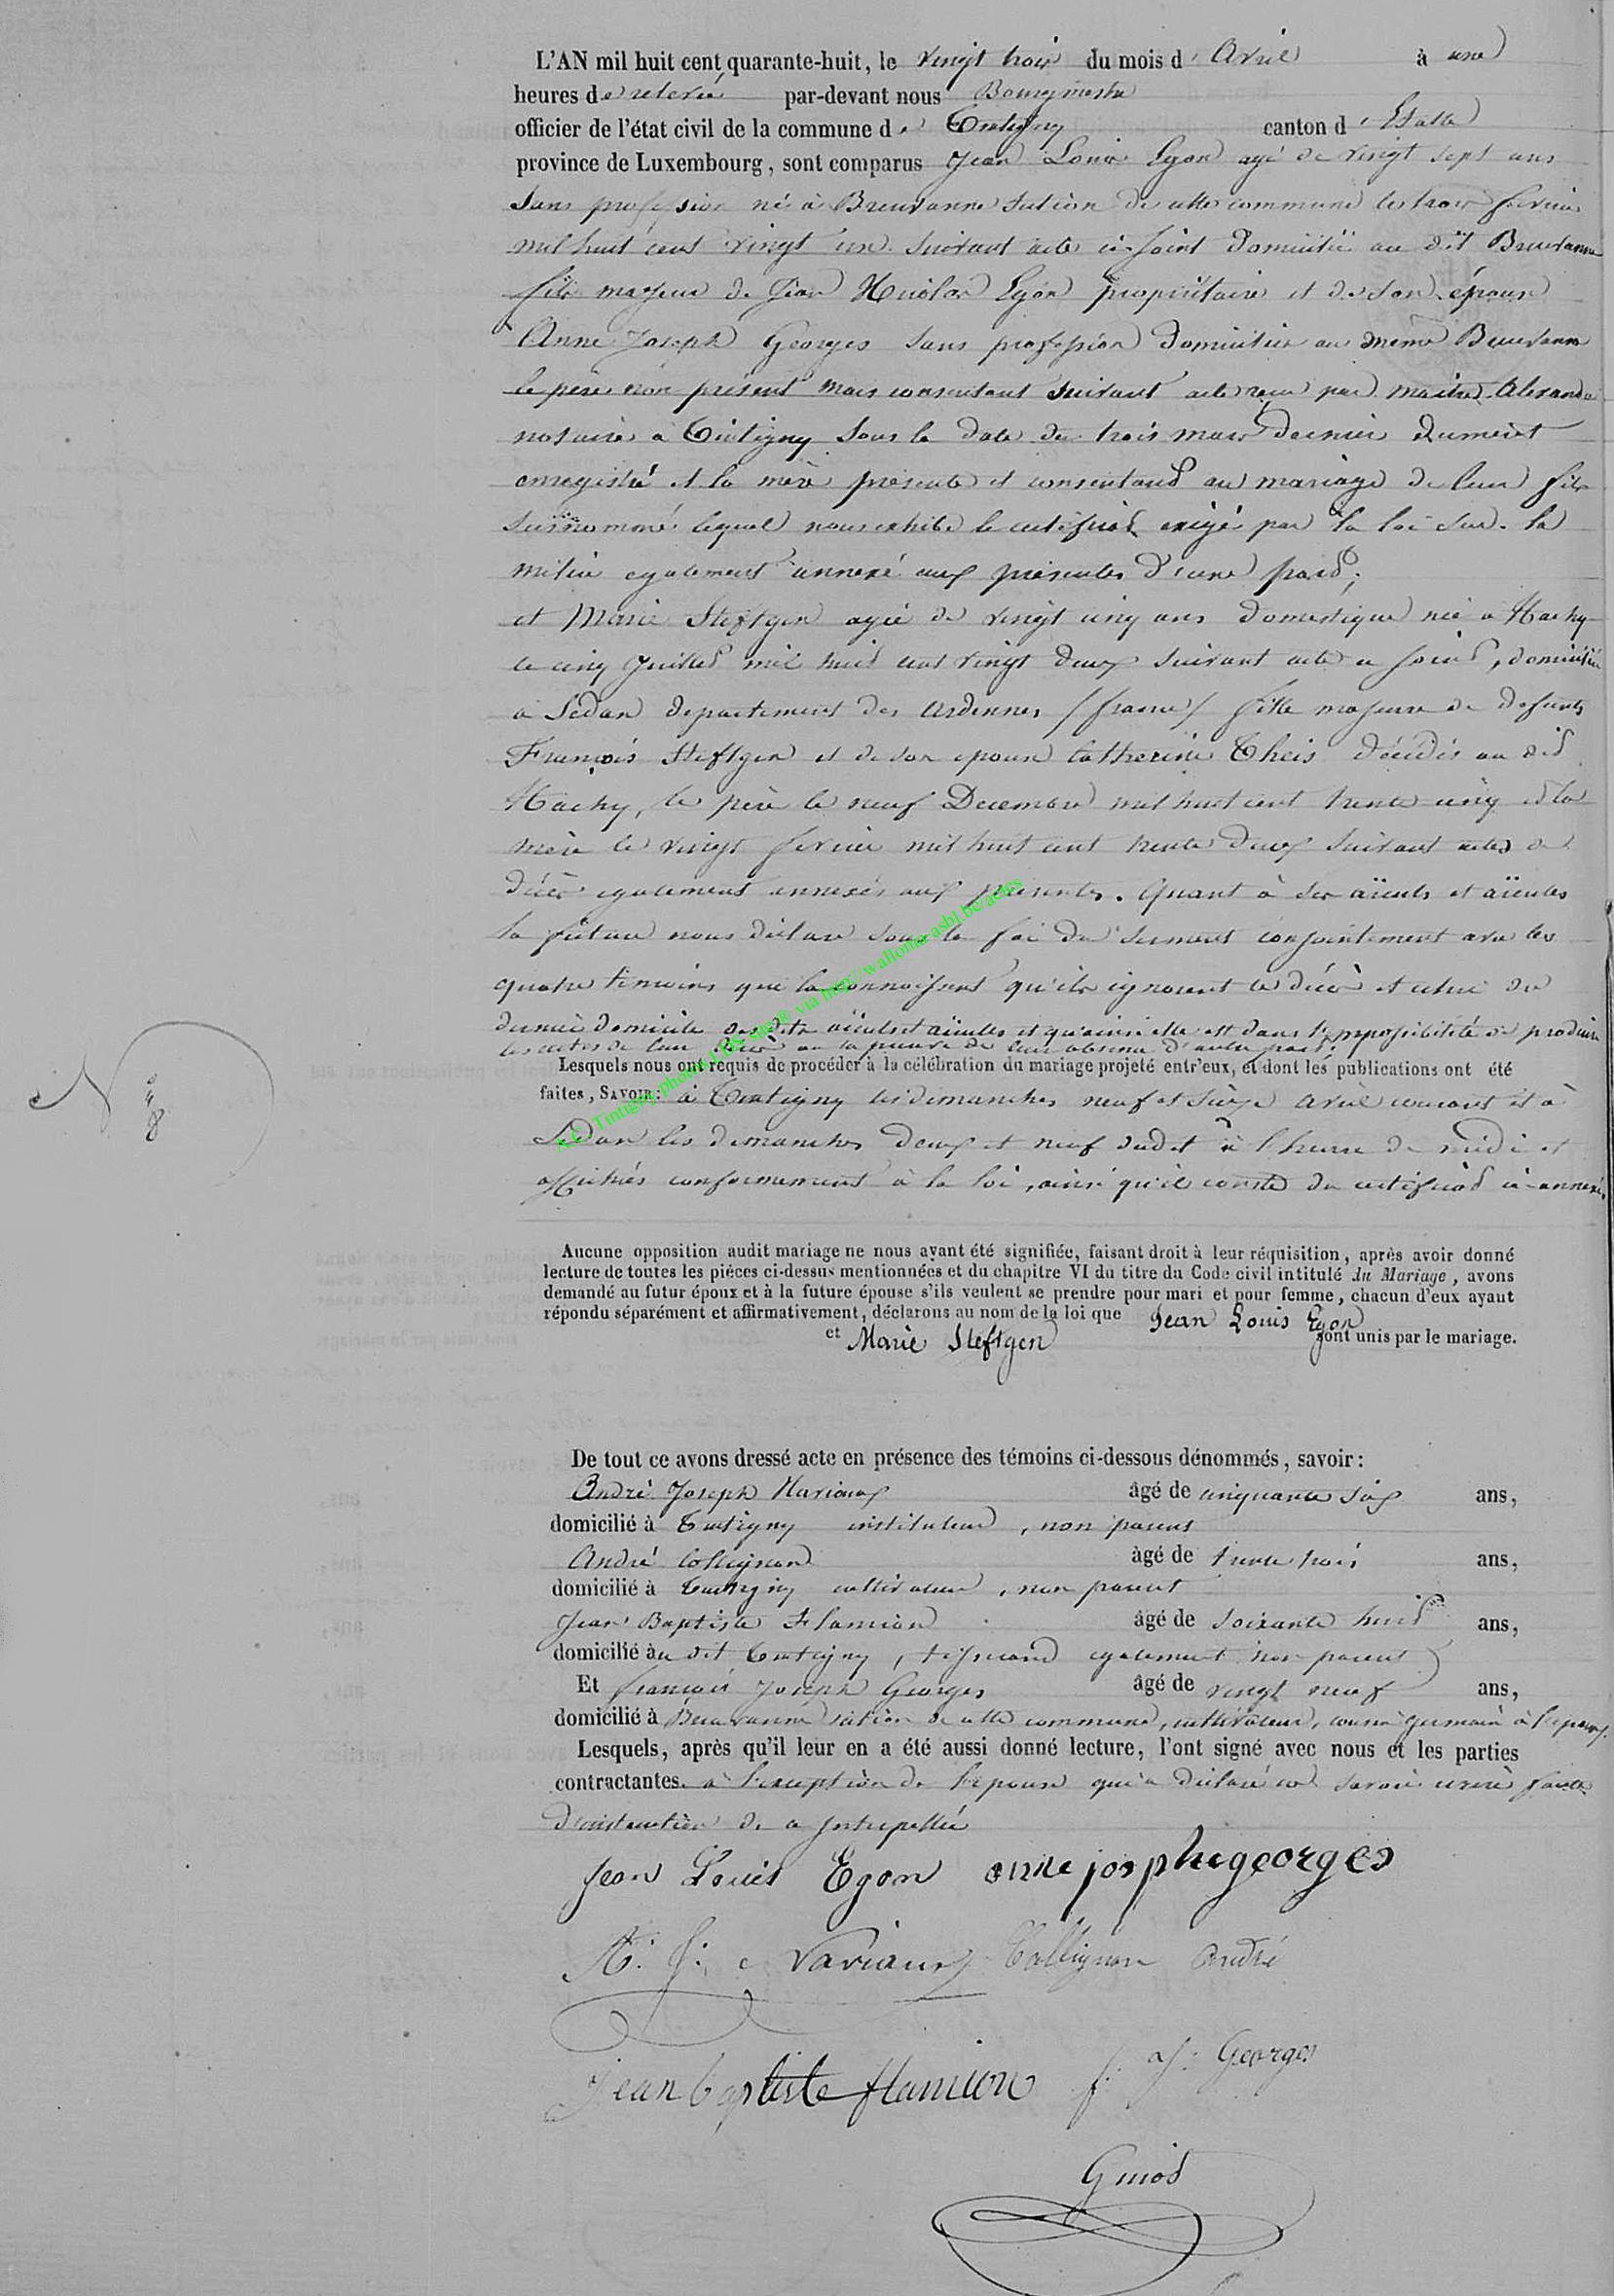 L'AN mil huit cent quarante-huit, le vingt trois du mois d'Avril à une
heures de relevée par-devant nous Bourgmestre
officier de l'état civil de la commune de Tintigny canton d'Etalle
province de Luxembourg, sont comparus Jean Louis Egon agé de vingt sept ans
sans profession né à Breuvanne section de cette commune le trois fevrier
mil huit cent vingt un suivant acte ci-joint domicilié au dit Breuvanne
fils majeur de Jean Nicolas Egon propriétaire et de son épouse
Anne Joseph Georges sans profession domiciliés au même Breuvanne
le père non présent mais consentant suivant acte reçu par maitre Alexandre
notaire à Tintigny sous la date du trois mars dernier dument
enregistré et la mère présente et consentant au mariage de leur fils
susnommé lequel nous exhibe le certificat exigé par la loi sur la
milice egalement annexé aux présentes d'une part;
et Marie Steftgen agée de vingt cinq ans domestique née a Hachy
le cinq Juillet mil huit cent vingt deux suivant acte ci joint, domiciliée
à Sedan departement des Ardennes /france/ fille majeure de defunts
François Steftgen et de son epouse Catherine Theis décédés au dit
Hachy, le père le neuf Decembre mil huit cent trente cinq et la
mère le vingt fevrier mil huit cent trente deux suivant actes de
décès egalement annexés aux présentes. Quant à ses aïeuls et aïeules
la future nous déclare sous la foi du serment conjointement avec les
quatre témoins que la connoissent qu'ils ignorent le décès et celui du
dernier domicile des dits aïeuls et aïeules et qu'ainsi elle est dans l'impossibilité de produire
les actes de leur décès ou la preuve de leur absence d'autre part;
Lesquels nous ont requis de procéder à la célébration du mariage projeté entr'eux, et dont les publications ont été
faites, SAVOIR: à Tintigny les dimanches neuf et seize avril courant et à
Sedan les dimanches deux et neuf dudit à l'heure de midi et
affichés conformement à la loi, ainsi qu'il conste du certificat ci-annexé,
N° 8
A.C. Tintigny photos LDS saisie via http://wallonia-asbl.be/actes
Aucune opposition audit mariage ne nous ayant été signifiée, faisant droit à leur réquisition, après avoir donné
lecture de toutes les pièces ci-dessus mentionnées et du chapitre VI du titre du Code civil intitulé du Mariage, avons
demandé au futur époux et à la future épouse s'ils veulent se prendre pour mari et pour femme, chacun d'eux ayant
répondu séparément et affirmativement, déclarons au nom de la loi que Jean Louis Egon
et Marie Steftgen sont unis par le mariage.
De tout ce avons dressé acte en présence des témoins ci-dessous dénommés, savoir:
André Joseph Variaux âgé de cinquante six ans,
domicilié à Tintigny instituteur, non parent
André Collignon âgé de trente trois ans,
domicilié à Tintigny cultivateur, non parent
Jean Baptiste Flamion âgé de soixante huit ans,
domicilié au dit Tintigny, tisserand egalement non parent
Et François Joseph Georges âgé de vingt neuf ans,
domicilié à Breuvanne section de cette commune, cultivateur, cousin germain à l'epoux.
Lesquels, après qu'il leur en a été aussi donné lecture, l'ont signé avec nous et les parties
contractantes à l'exception de l'epouse qui a déclaré ne savoir ecrire faute
d'instruction de ce interpellée
Jean Louis Egon anne josphe georges
A. J. Variaux Collignon André
Jean baptiste flamion f. J. Georges
Guiot